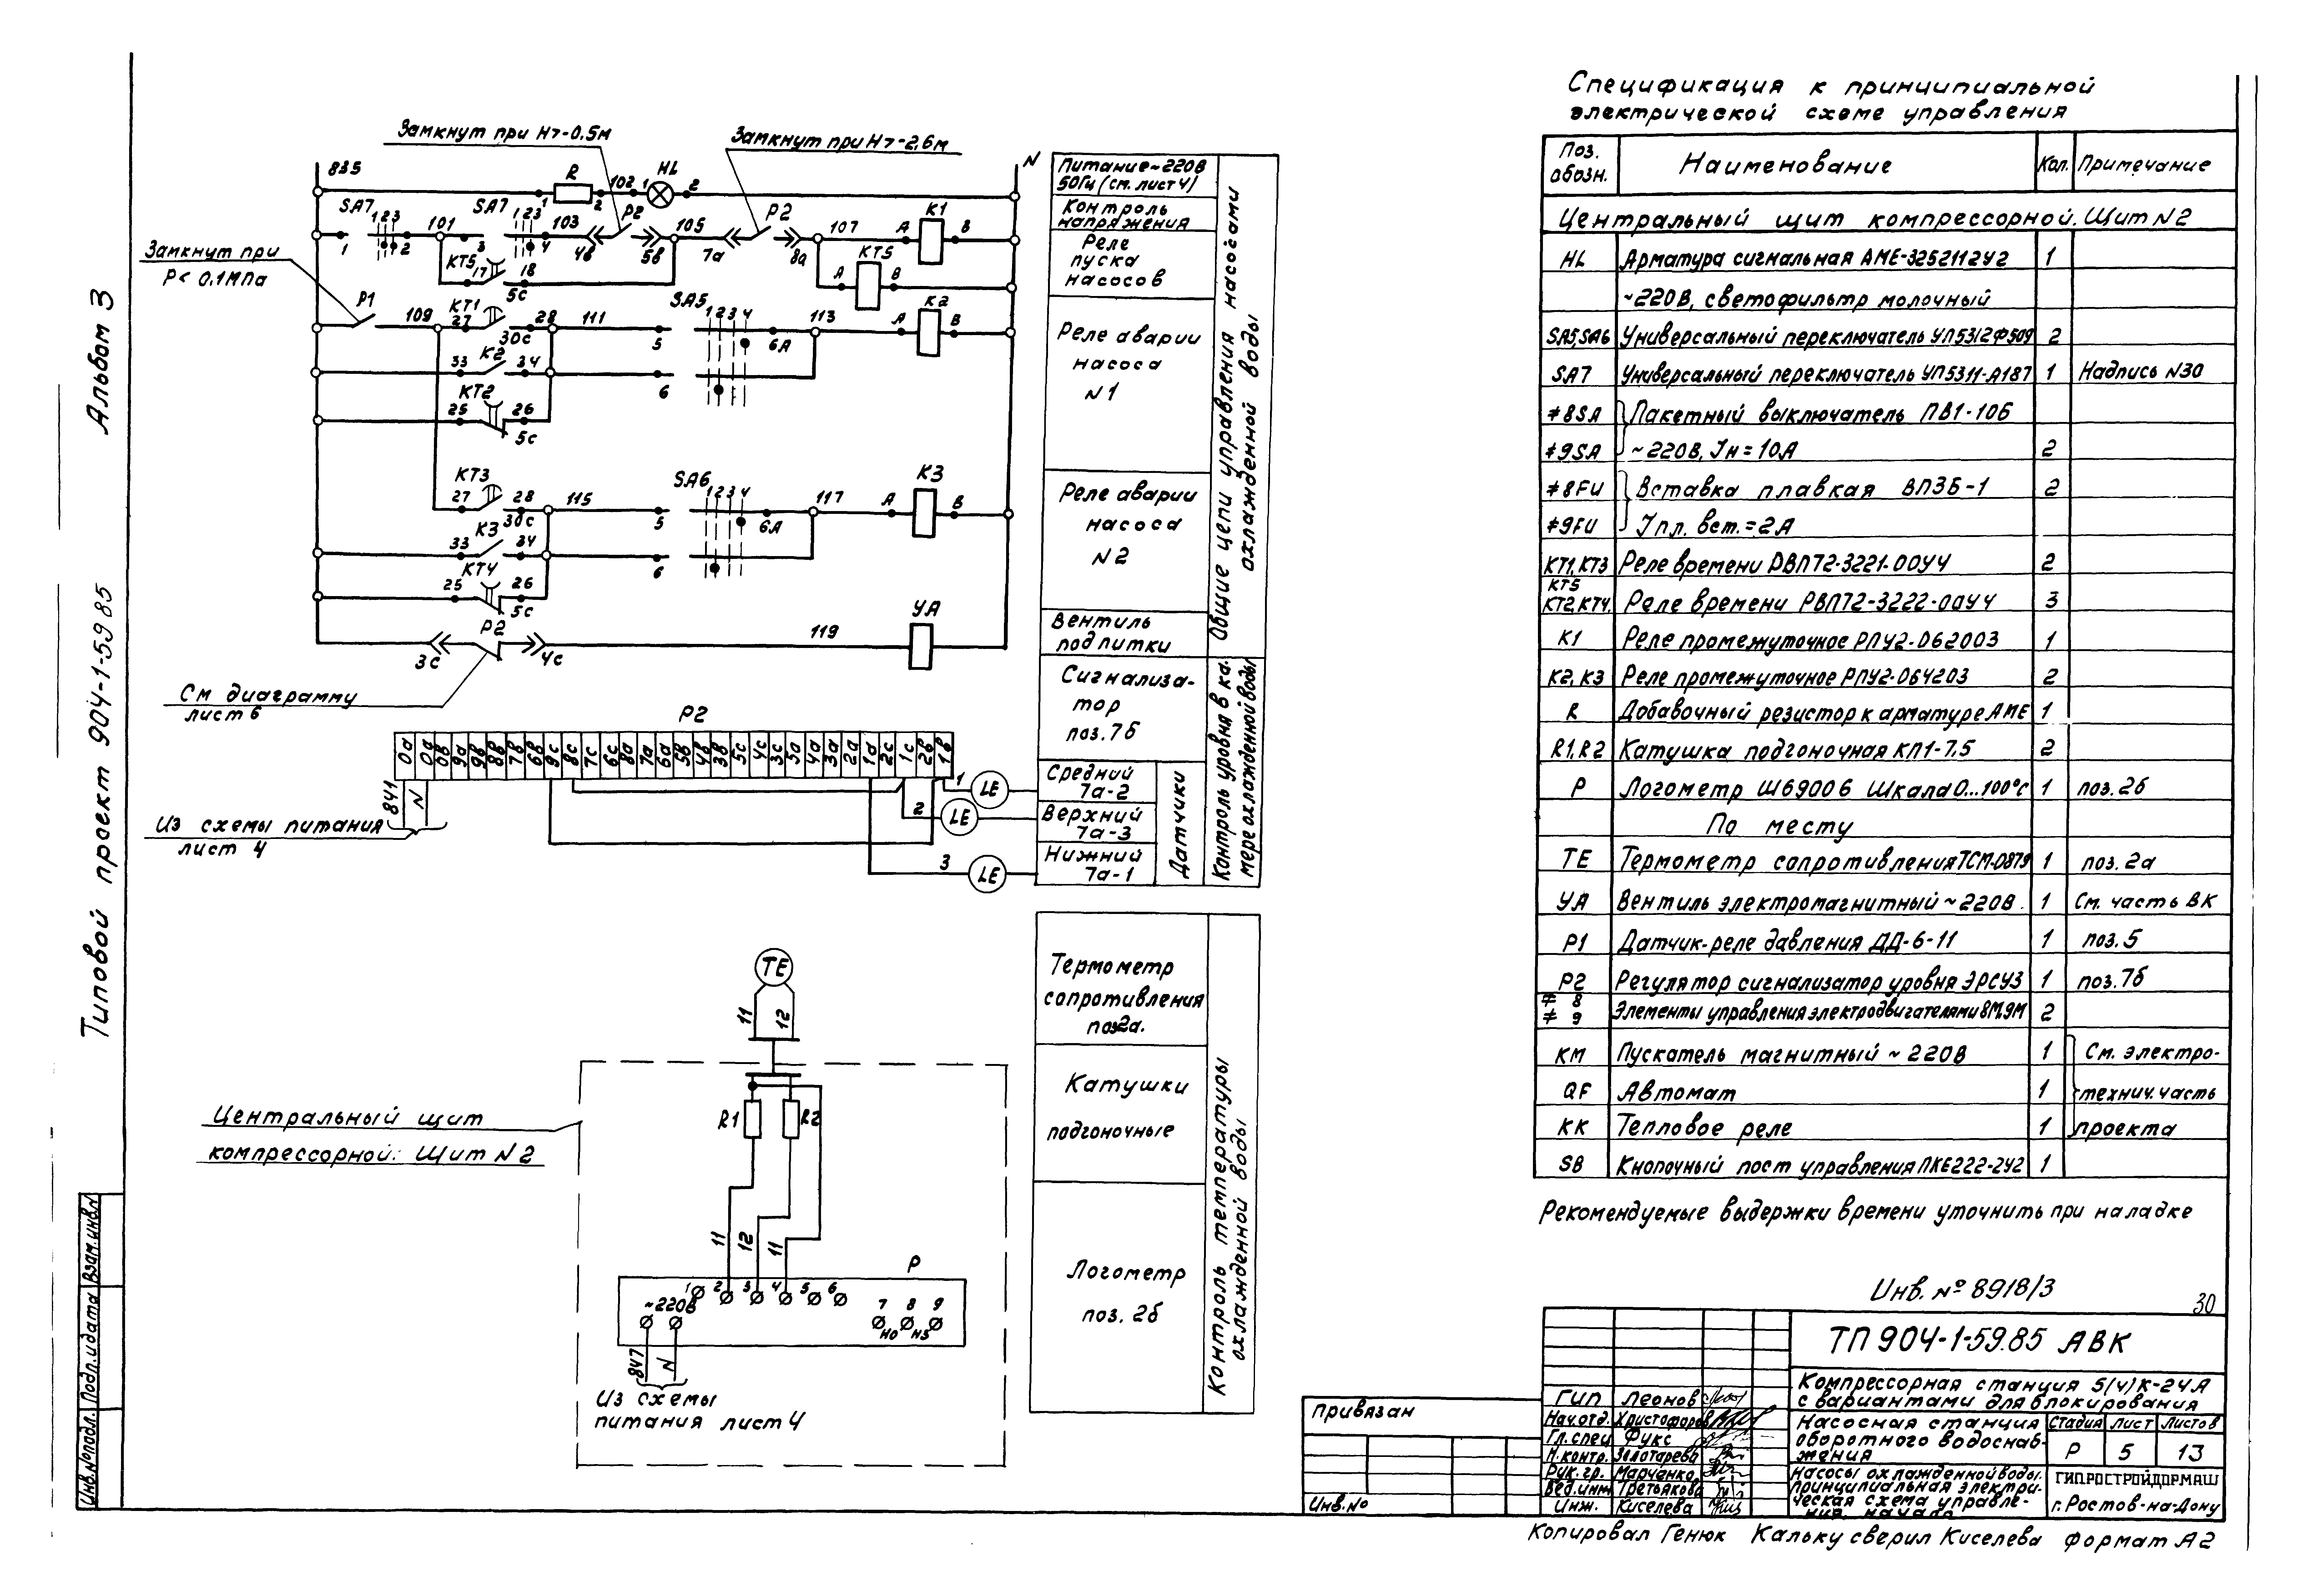 Альбом 3
Типовой проект 904-1-59 85
Взам.инв.N
Подп.и дата
Инв.Nоподл.
Замкнут при Н>-0.5м
Замкнут при Н>-2,6м
Замкнут при
Р< 0.1МПа
835
R
102
HL
N
1
2
1
2
SA7
1 2 3
101
SA7
1 2 3
103
P2
105
P2
107
K1
1
2
3
4
4в
5в
7а
8а
А
В
КТ5
17
18
5с
КТ5
А
В
Р1
109
КТ1
27
28
30с
111
SA5
1 2 3 4
5
6А
113
К2
А
В
К2
33
34
6
КТ2
25
26
5с
КТ3
27
28
30с
115
SA6
1 2 3 4
5
6А
117
К3
А
В
К3
33
34
6
КТ4
25
26
5с
Р2
3с
4с
119
УА
См диаграмму
лист 6
Питание~220В
50Гц (см. лист 4)
Контроль
напряжения
Реле
пуска
насосов
Реле аварии
насоса
N 1
Реле аварии
насоса
N 2
Вентиль
подпитки
Общие цепи управления насосами
охлажденной воды
Сигнализа-
тор
поз.7б
Средний
7а-2
Верхний
7а-3
Нижний
7а-1
Датчики
Контроль уровня в ка-
мере охлажденной воды
Р2
0а 0а 0в 9а 9в 8в 7в 6в 9с 8с 7с 6с 8а 7а 6а 5в 4в 3в 5с 4с 3с 5а 4а 3а 2а 1а 2с 1с 2в 1в
841
N
Из схемы питания
лист 4
1
LE
2
LE
3
LE
ТЕ
11
12
Центральный щит
компрессорной: Щит N 2
R1
R2
11
12
11
Р
1 2 3 4 5 6
~220В
7 8 9
НО НЗ
847
N
Из схемы
питания лист 4
Термометр
сопротивления
поз2а.
Катушки
подгоночные
Логометр
поз. 2б
Контроль температуры
охлажденной воды
Спецификация к принципиальной
электрической схеме управления
Поз. обозн. Наименование Кол. Примечание
Центральный щит компрессорной. Щит N 2
HL Арматура сигнальная АМЕ-3252112У2 1
~220В, светофильтр молочный
SA5,SA6 Универсальный переключатель УП5312Ф509 2
SA7 Универсальный переключатель УП5311-А187 1 Надпись N30
≠8SA Пакетный выключатель ПВ1-10Б
≠9SA ~220В, Iн=10А 2
≠8FU Вставка плавкая ВПЗБ-1 2
≠9FU Iпл. вст.=2А
КТ1,КТ3 Реле времени РВП72-3221-00У4 2
КТ5
КТ2,КТ4, Реле времени РВП72-3222-00У4 3
К1 Реле промежуточное РПУ2-062003 1
К2, К3 Реле промежуточное РПУ2-064203 2
R Добавочный резистор к арматуре АМЕ 1
R1,R2 Катушка подгоночная КП1-7.5 2
Р Логометр Ш69006 шкала 0...100°С 1 поз.2б
По месту
ТЕ Термометр сопротивления ТСМ-0879 1 поз. 2а
УА Вентиль электромагнитный ~220В. 1 См. часть ВК
Р1 Датчик-реле давления ДД-6-11 1 поз.5
Р2 Регулятор сигнализатор уровня ЭРСУ3 1 поз.7б
≠ 8
≠ 9 Элементы управления электродвигателями 8М,9М 2
КМ Пускатель магнитный ~ 220В 1 См. электро-
QF Автомат 1 технич. часть
КК Тепловое реле 1 проекта
SB Кнопочный пост управления ПКЕ222-2У2 1
Рекомендуемые выдержки времени уточнить при наладке
Инв. № 8918/3
30
ТП 904-1-59.85 АВК
Компрессорная станция 5(4)К-24А
с вариантами для блокирования
Насосная станция
оборотного водоснаб-
жения
Стадия Лист Листов
Р 5 13
Насосы охлажденной воды.
Принципиальная электри-
ческая схема управле-
ния. Начало
ГИПРОСТРОЙДОРМАШ
г. Ростов-на-Дону
ГИП Леонов
Нач.отд. Христофоров
Гл.спец Фукс
Н.контр. Золотарева
Рук.гр. Марченко
Вед.инж Третьякова
Инж. Киселева
Привязан
Инв.No
Копировал Генюк Кальку сверил Киселева формат А2